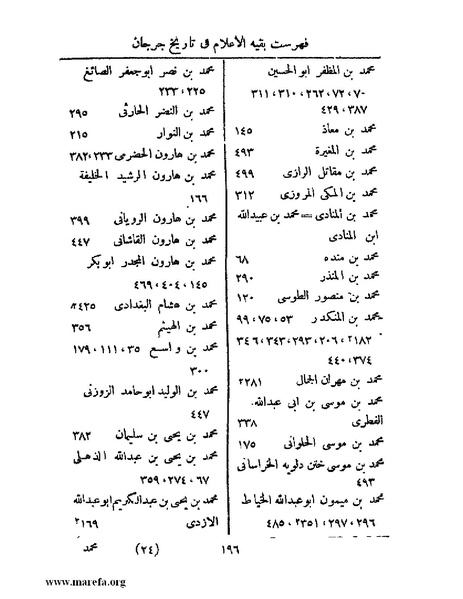 فهرست بقيه الأعلام فى تاريخ جرجان
محمد بن المظفر ابو الحسين
٧٠، ٧٢، ٢٦٢، ٣١٠، ٣١١
٣٨٧، ٤٢٩
محمد بن معاذ ١٤٥
محمد بن المغيرة ٤٩٣
محمد بن مقاتل الرازى ٤٩٩
محمد بن المكى المروزى ٣١٢
محمد بن المنادى = محمد بن عبيدالله
ابن المنادى
محمد بن منده ٦٨
محمد بن المنذر ٢٩٠
محمد بن منصور الطوسى ١٢٠
محمد بن المنكدر ٥٣، ٧٥، ٩٩
١٨٢٢، ٢٠٦، ٢٩٣، ٣٤٣، ٣٤٦
٣٧٤، ٤٤٠
محمد بن مهران الجمال ٢٨١٢
محمد بن موسى بن ابى عبدالله
الفطرى ٣٣٨
محمد بن موسى الحلوانى ١٧٥
محمد بن موسى ختن دلويه الخراسانى
٤٩٣
محمد بن ميمون ابو عبدالله الخياط
٢٩٦، ٢٩٧، ٣٥١٢، ٤٨٥
محمد بن نصر ابو جعفر الصائغ
٢٢٥، ٢٣٣
محمد بن النضر الحارثى ٢٩٥
محمد بن النوار ٢١٥
محمد بن هارون الحضرمى ٢٣٣، ٣٨٢
محمد بن هارون الرشيد الخليفة
١٦٦
محمد بن هارون الرويانى ٣٩٩
محمد بن هارون القاشانى ٤٤٧
محمد بن هارون المجدر ابوبكر
١٤٥، ٤٠٤، ٤٦٩
محمد بن هشام البغدادى ٤٢٥
محمد بن الهيثم ٣٥٦
محمد بن واسع ٣٥، ١١١، ١٧٩
٣٠٠
محمد بن الوليد ابو حامد الزوزنى
٤٤٧
محمد بن يحيى بن سليمان ٣٨٢
محمد بن يحيى بن عبدالله الذهلى
٦٧، ٢٧٤، ٣٥٩
محمد بن يحيى بن عبدالكريم ابو عبدالله
الازدى ١٦٩٢
١٩٦ (٢٤) محمد
www.marefa.org